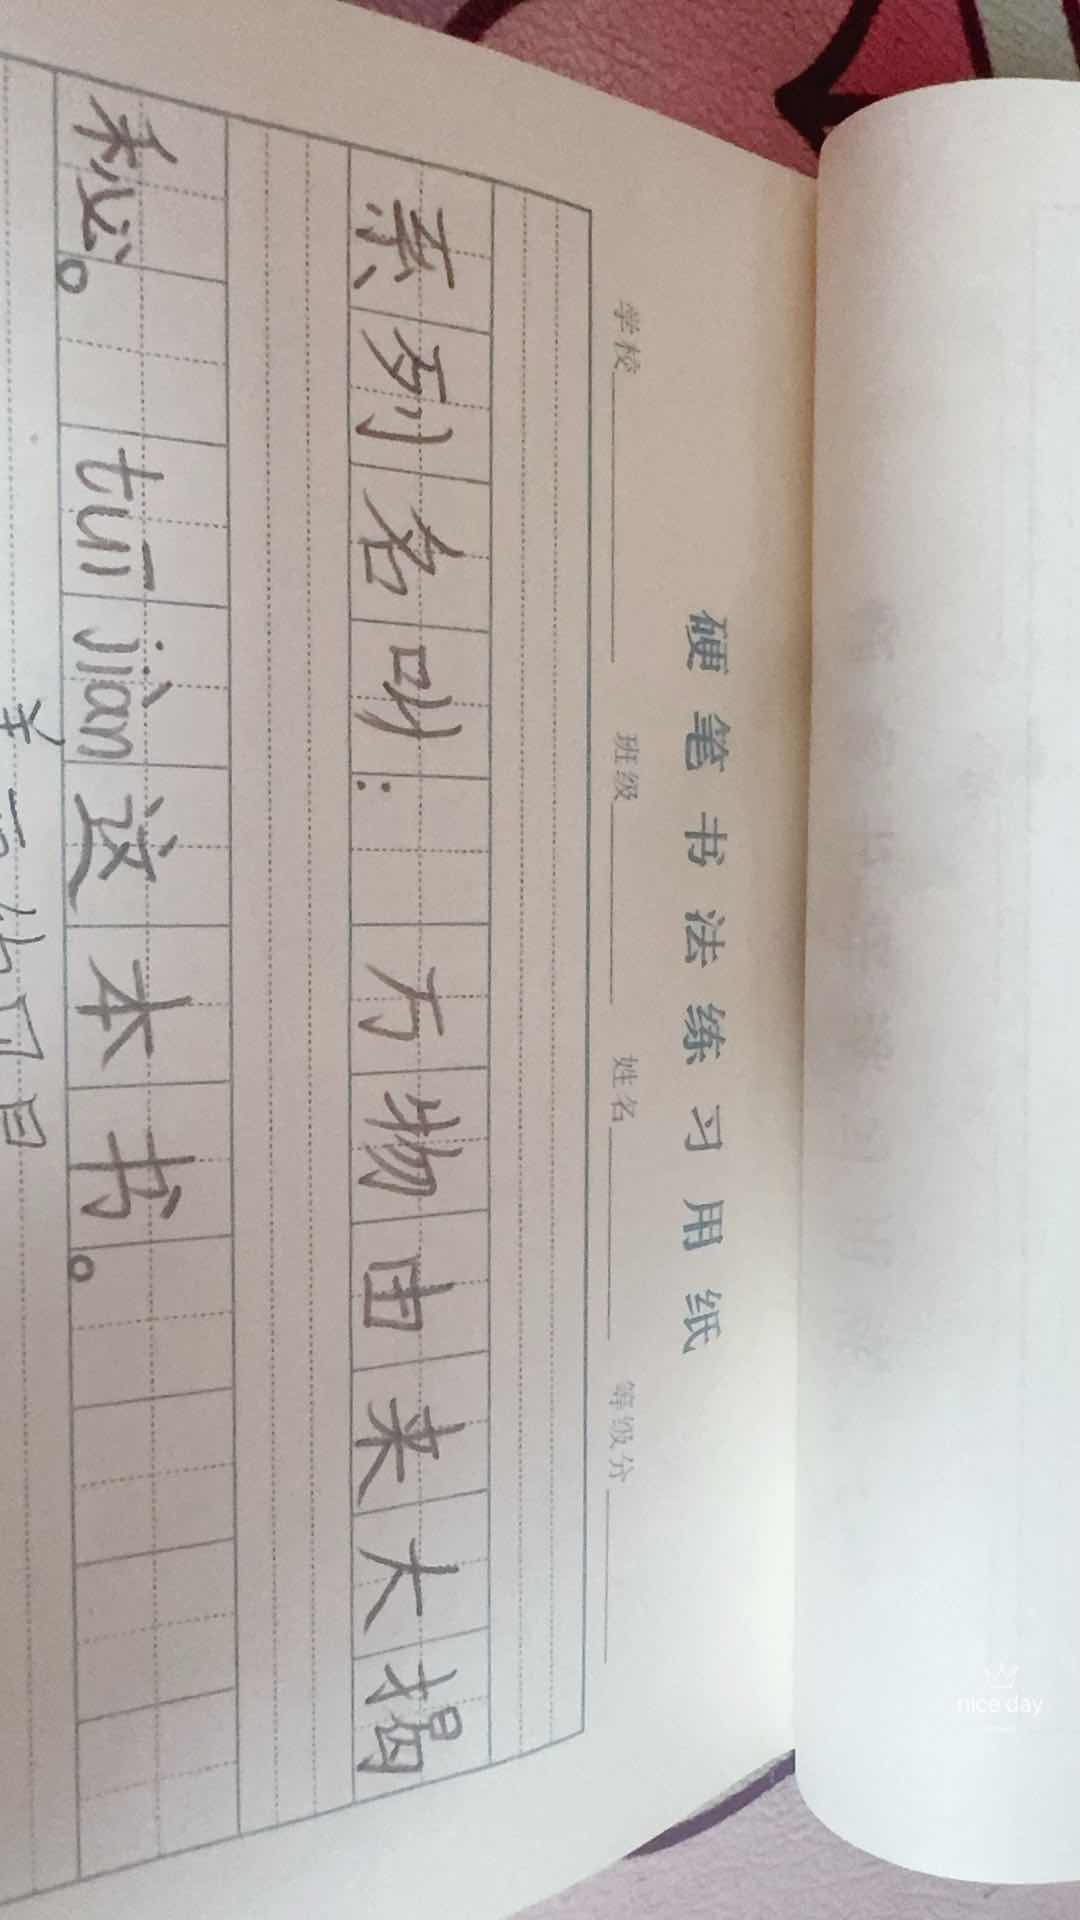 硬笔书法练习用纸
学校 班级 姓名 等级分
系列名叫：万物由来大揭
秘。 tuī jiàn 这本书。
nice day